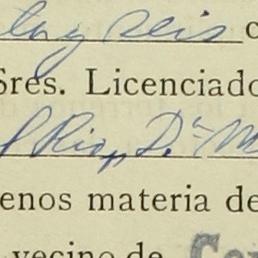 seis
Sres. Licenciado
Rio, D.ª M
enos materia de
vecino de